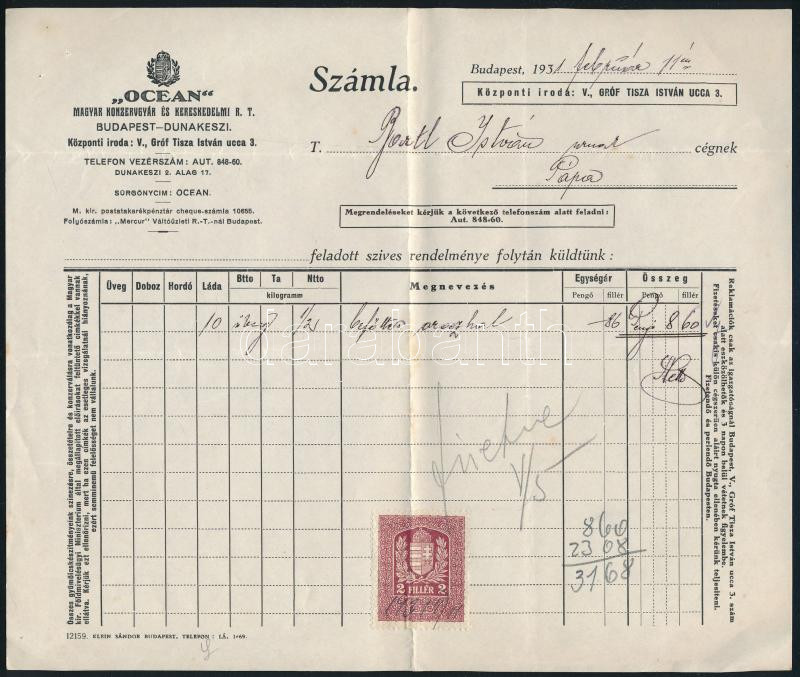 „OCEAN“
MAGYAR KONZERVGYÁR ÉS KERESKEDELMI R. T.
BUDAPEST—DUNAKESZI.
Központi iroda: V., Gróf Tisza István ucca 3.
TELEFON VEZÉRSZÁM: AUT. 848-60.
DUNAKESZI 2. ALAG 17.
SÜRGÖNYCIM: OCEAN.
M. kir. postatakarékpénztár cheque-számla 10655.
Folyószámla: „Mercur" Váltóüzleti R.-T.-nál Budapest.
Számla.
Budapest, 1931 február 11én
Központi iroda: V., GRÓF TISZA ISTVÁN UCCA 3.
T. István cégnek
Pápa
Megrendeléseket kérjük a következő telefonszám alatt feladni:
Aut. 848-60.
feladott szives rendelménye folytán küldtünk:
Üveg Doboz Hordó Láda Btto Ta Ntto Megnevezés Egységár Összeg
kilogramm Pengő fillér Pengő fillér
10 üveg 1/2 -86 Pengő 8 60
Netto
V/5
860
2308
3168
2 FILLÉR 2
Összes gyümölcskészítményeink színezésre, összetételre és konzerválásra vonatkozólag a Magyar
kir. Földmivelésügyi Miniszterium által megállapitott előirásokat feltüntető cimkékkel vannak
ellátva. Kérjük ezt ellenőrizni, mert ha ezen cimkék az esetleges vizsgálatnál hiányoznának,
ezért semminemü felelősséget nem vállalunk.
Reklamációk csak az igazgatóságnál Budapest, V., Gróf Tisza István ucca 3. szám
alatt eszközölhetők és 3 napon belül vétetnek figyelembe.
Fizetéseket csakis külön cégszerüen aláirt nyugta ellenében kérünk teljesiteni.
Fizetendő és perlendő Budapesten.
12159. KLEIN SÁNDOR BUDAPEST. TELEFON:
darabanth